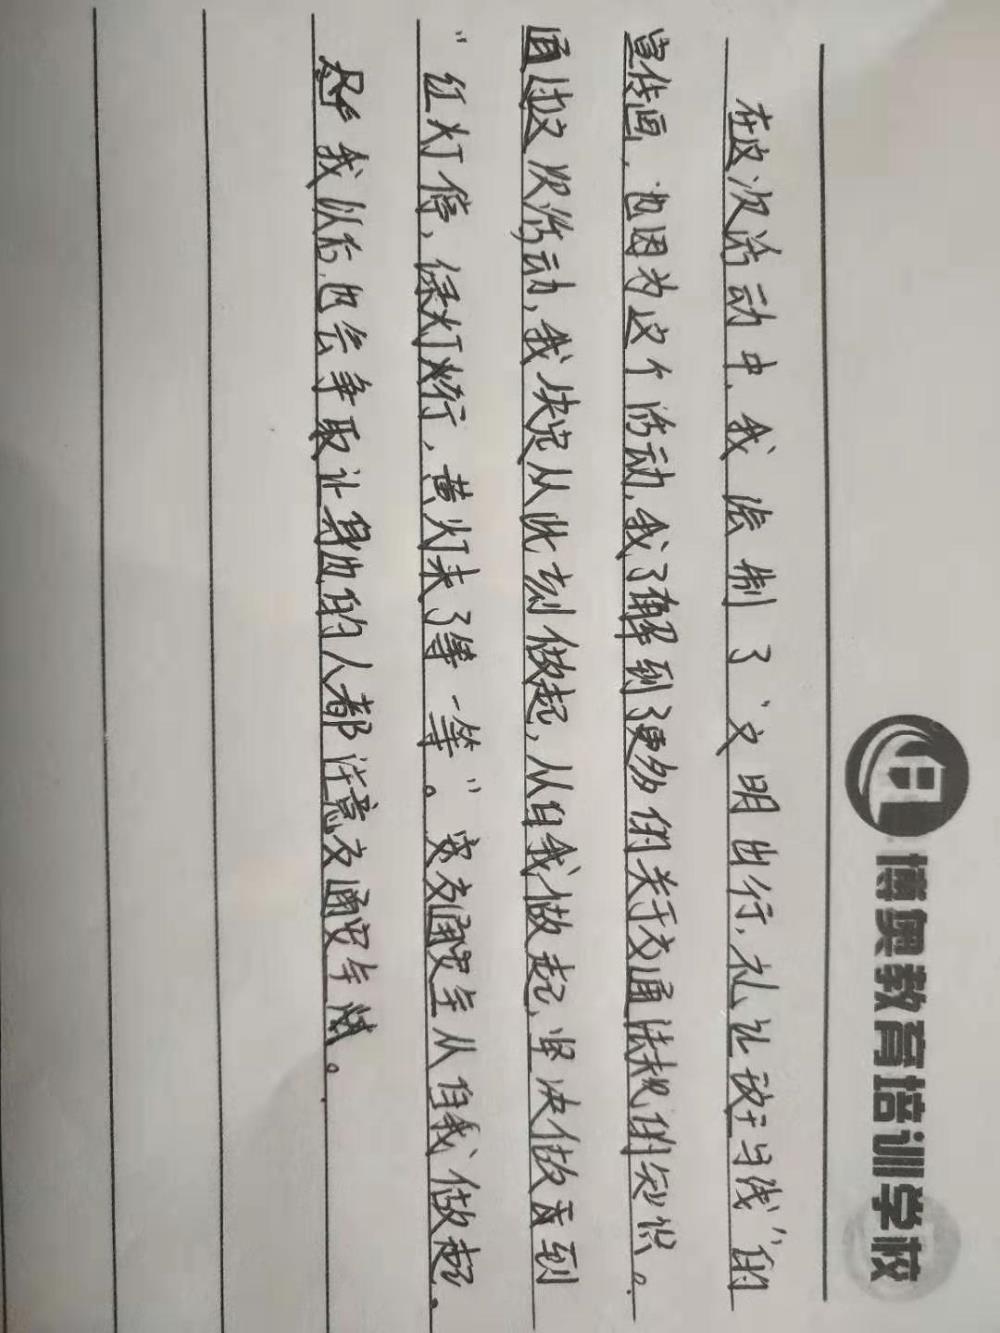 博奥教育培训学校
在这次活动中，我绘制了“文明出行，礼让斑马线”的
宣传画，也因为这个活动，我了解到了更多的关于交通法规的知识。
通过这次活动，我决定从此刻做起，从自我做起，坚决做到
“红灯停，绿灯行，黄灯来了等一等”。交通安全从自我做起。
我以后也会争取让身边的人都注意交通安全。